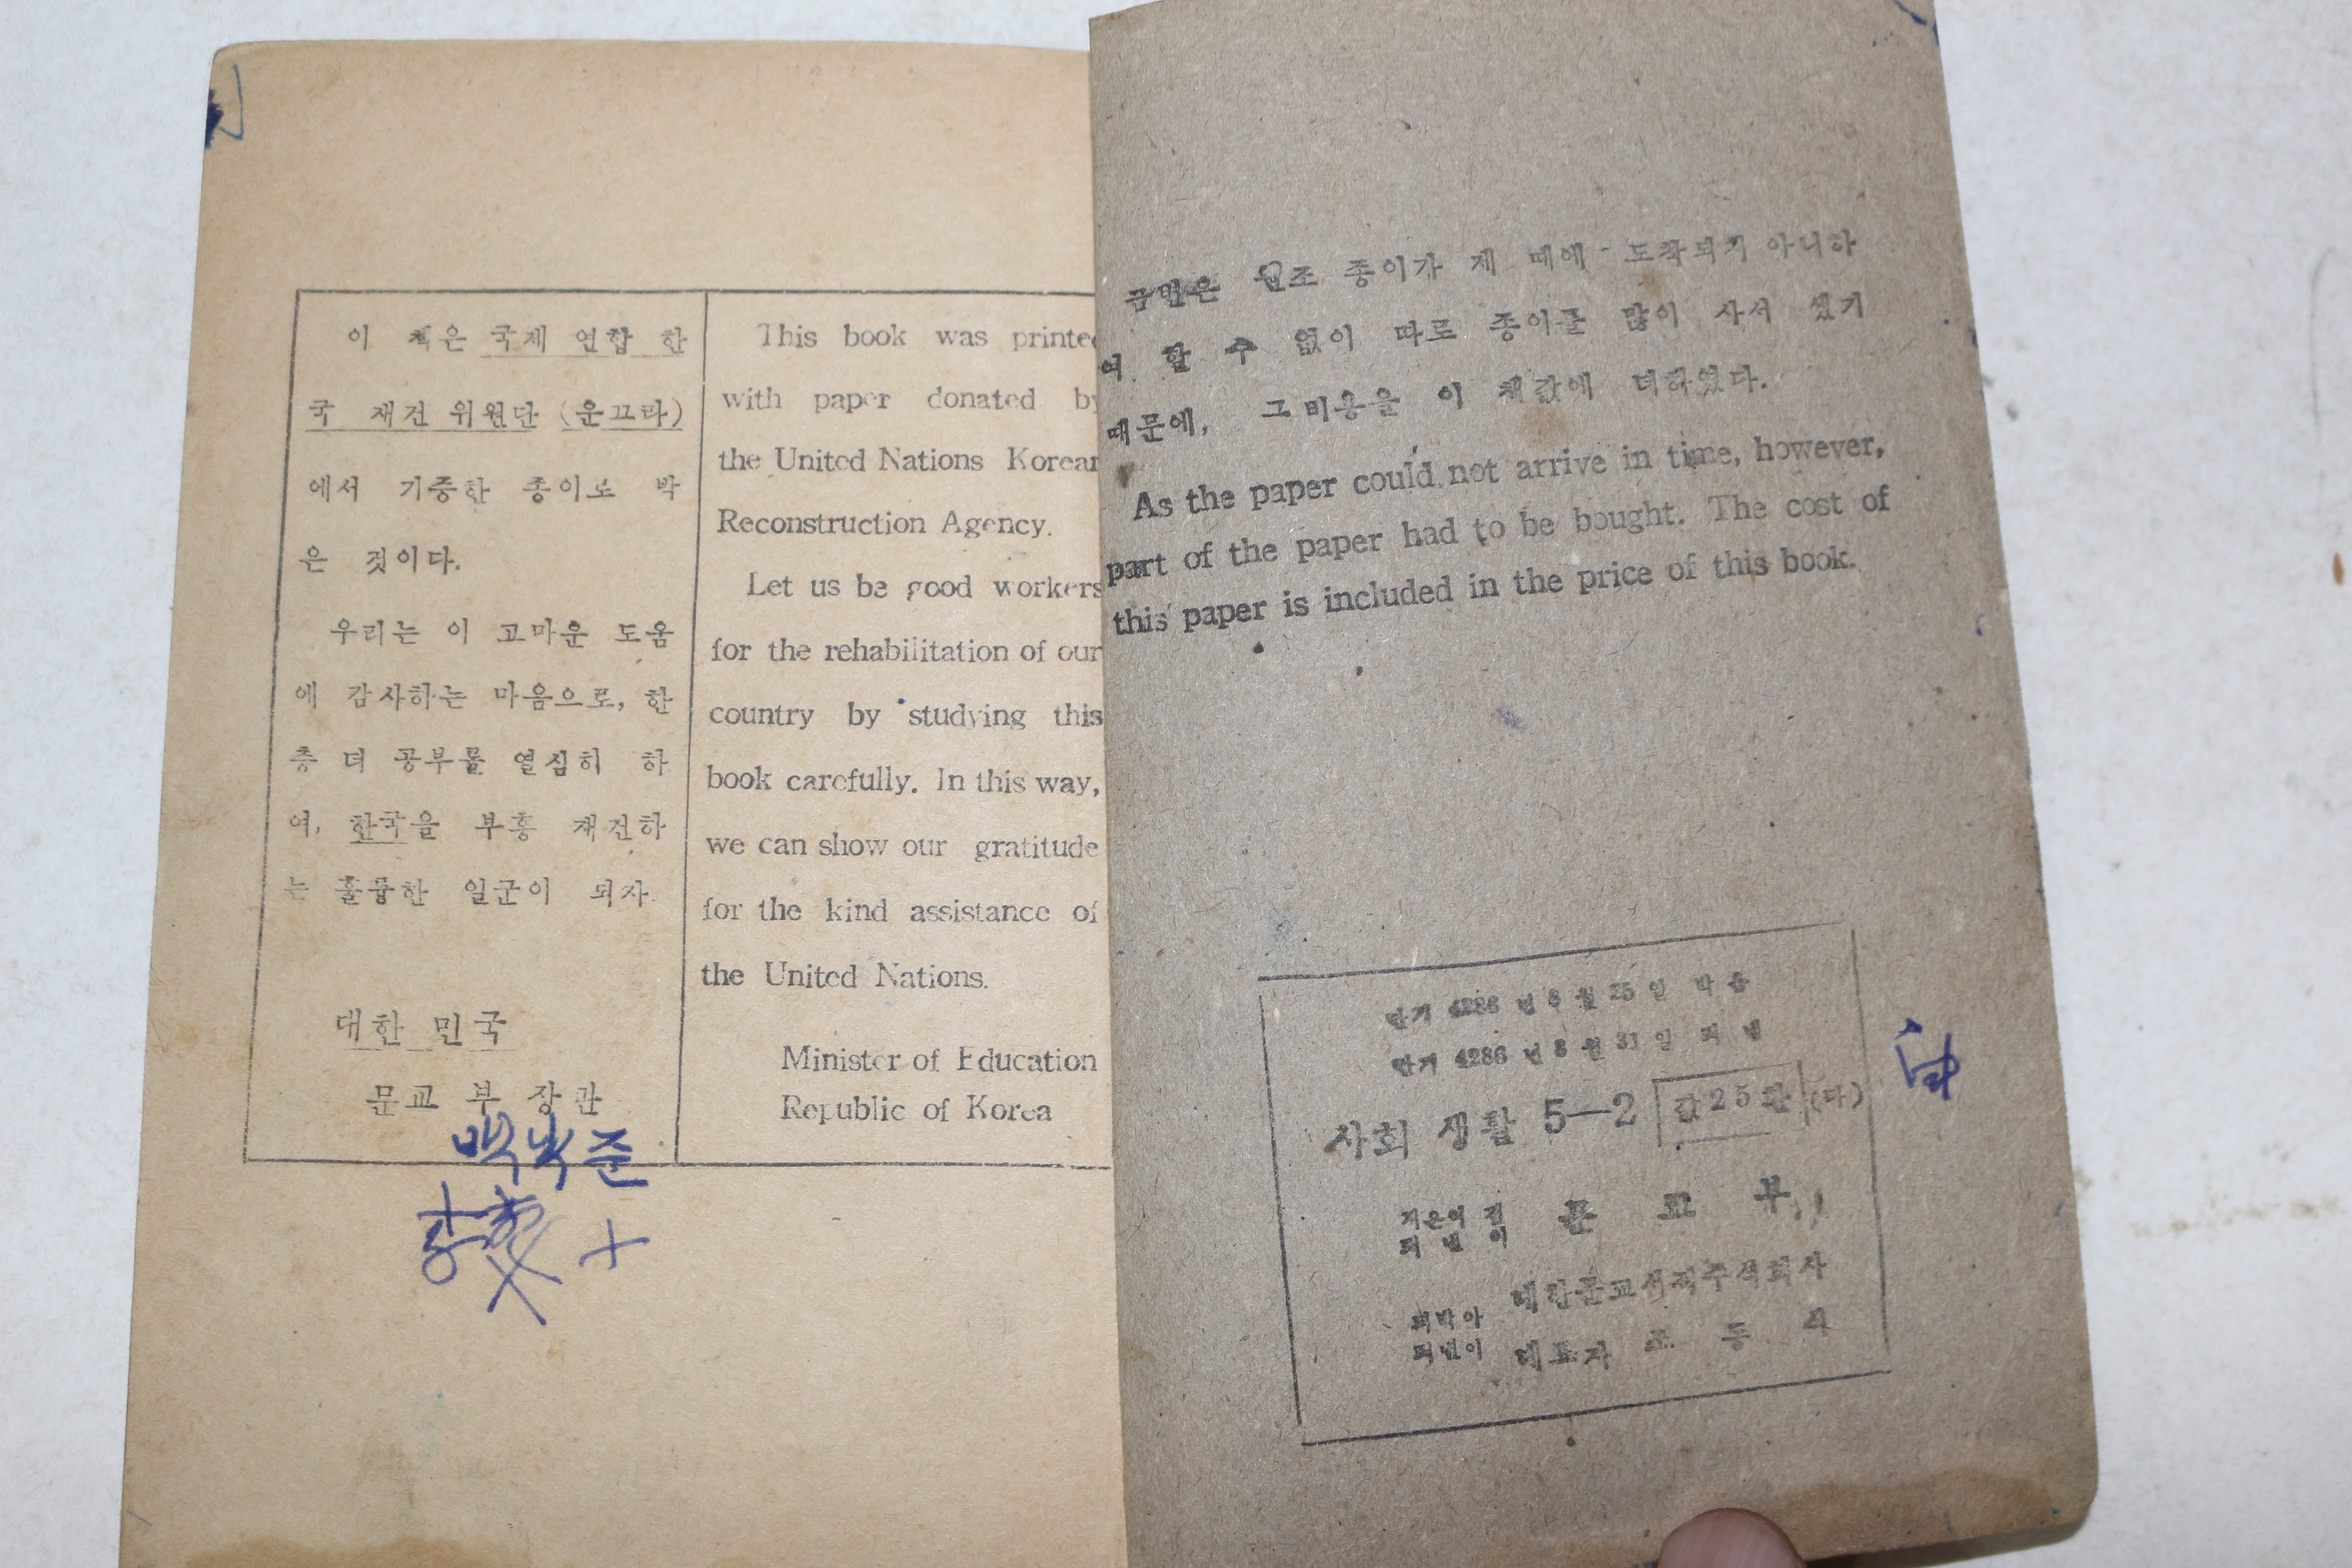 이 책은 국제 연합 한
국 재건 위원단 (운끄라)
에서 기증한 종이로 박
은 것이다.
우리는 이 고마운 도움
에 감사하는 마음으로, 한
층 더 공부를 열심히 하
여, 한국을 부흥 재건하
는 훌륭한 일군이 되자.
대한 민국
문교 부 장관
백낙준
This book was printed
with paper donated by
the United Nations Korean
Reconstruction Agency.
Let us be good workers
for the rehabilitation of our
country by studying this
book carefully. In this way,
we can show our gratitude
for the kind assistance of
the United Nations.
Minister of Education
Republic of Korea
금번은 원조 종이가 제 때에 도착되지 아니하
여 할 수 없이 따로 종이를 많이 사서 썼기
때문에, 그 비용을 이 책값에 더하였다.
As the paper could not arrive in time, however,
part of the paper had to be bought. The cost of
this paper is included in the price of this book.
단기 4286 년 8 월 25 일 박음
단기 4286 년 8 월 31 일 펴냄
사회 생활 5—2 값 25환 (다)
지은이 겸 펴낸이 문 교 부
박아 펴낸이 대한문교서적주식회사
대표자 조 동